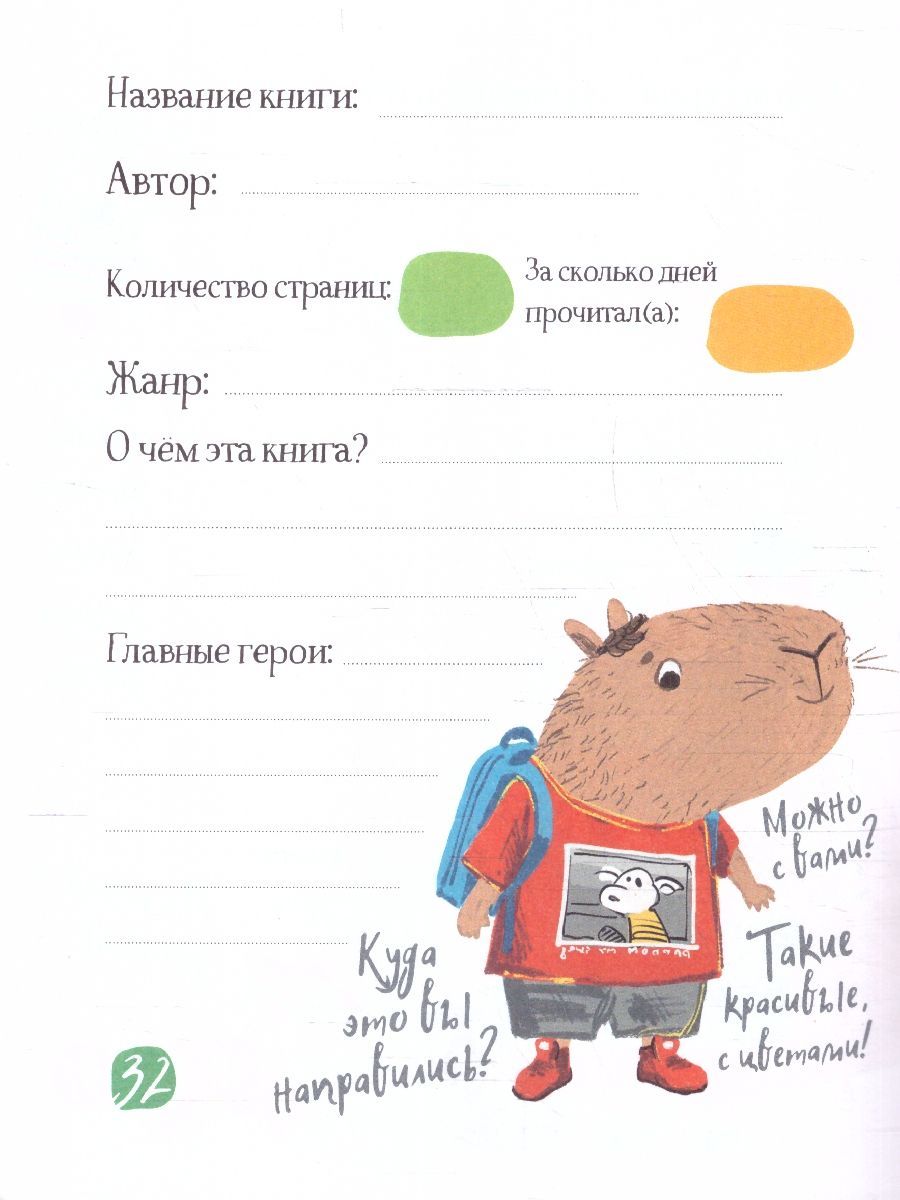 Название книги:
Автор:
Количество страниц:
За сколько дней
прочитал(а):
Жанр:
О чём эта книга?
Главные герои:
Можно
с вами?
Куда
это вы
направились?
Такие
красивые,
с цветами!
32